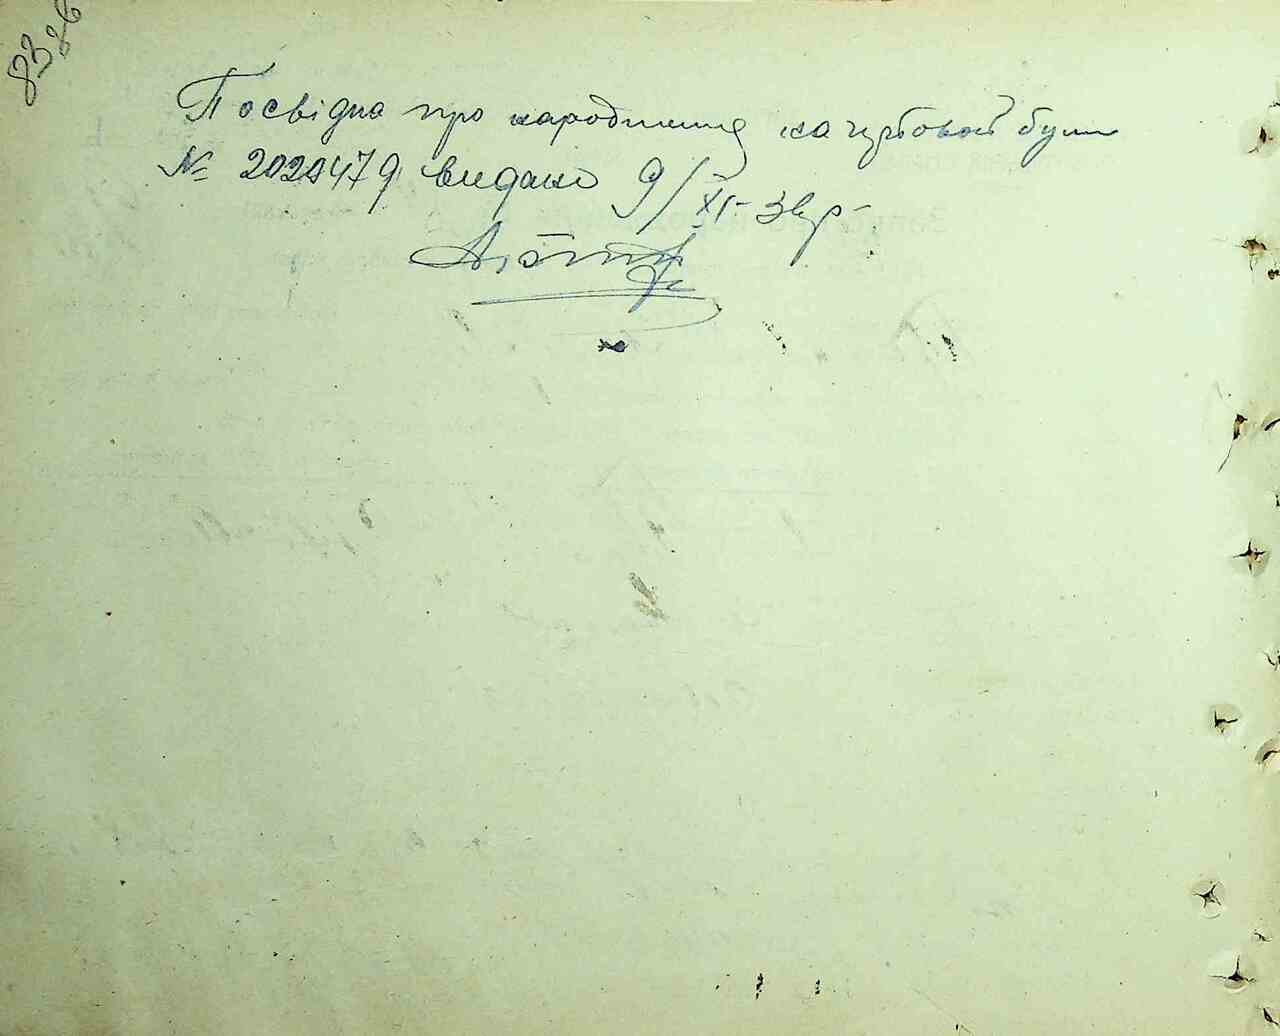 8386
Посвідка про народження на гербовой бум.
№ 2020479 видано 9/XI-